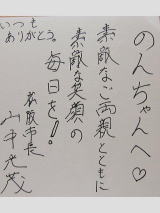 のんちゃんへ♡
素敵なご両親とともに
素敵な笑顔の
毎日を!!
いつも
ありがとう。
松阪市長
山中光茂